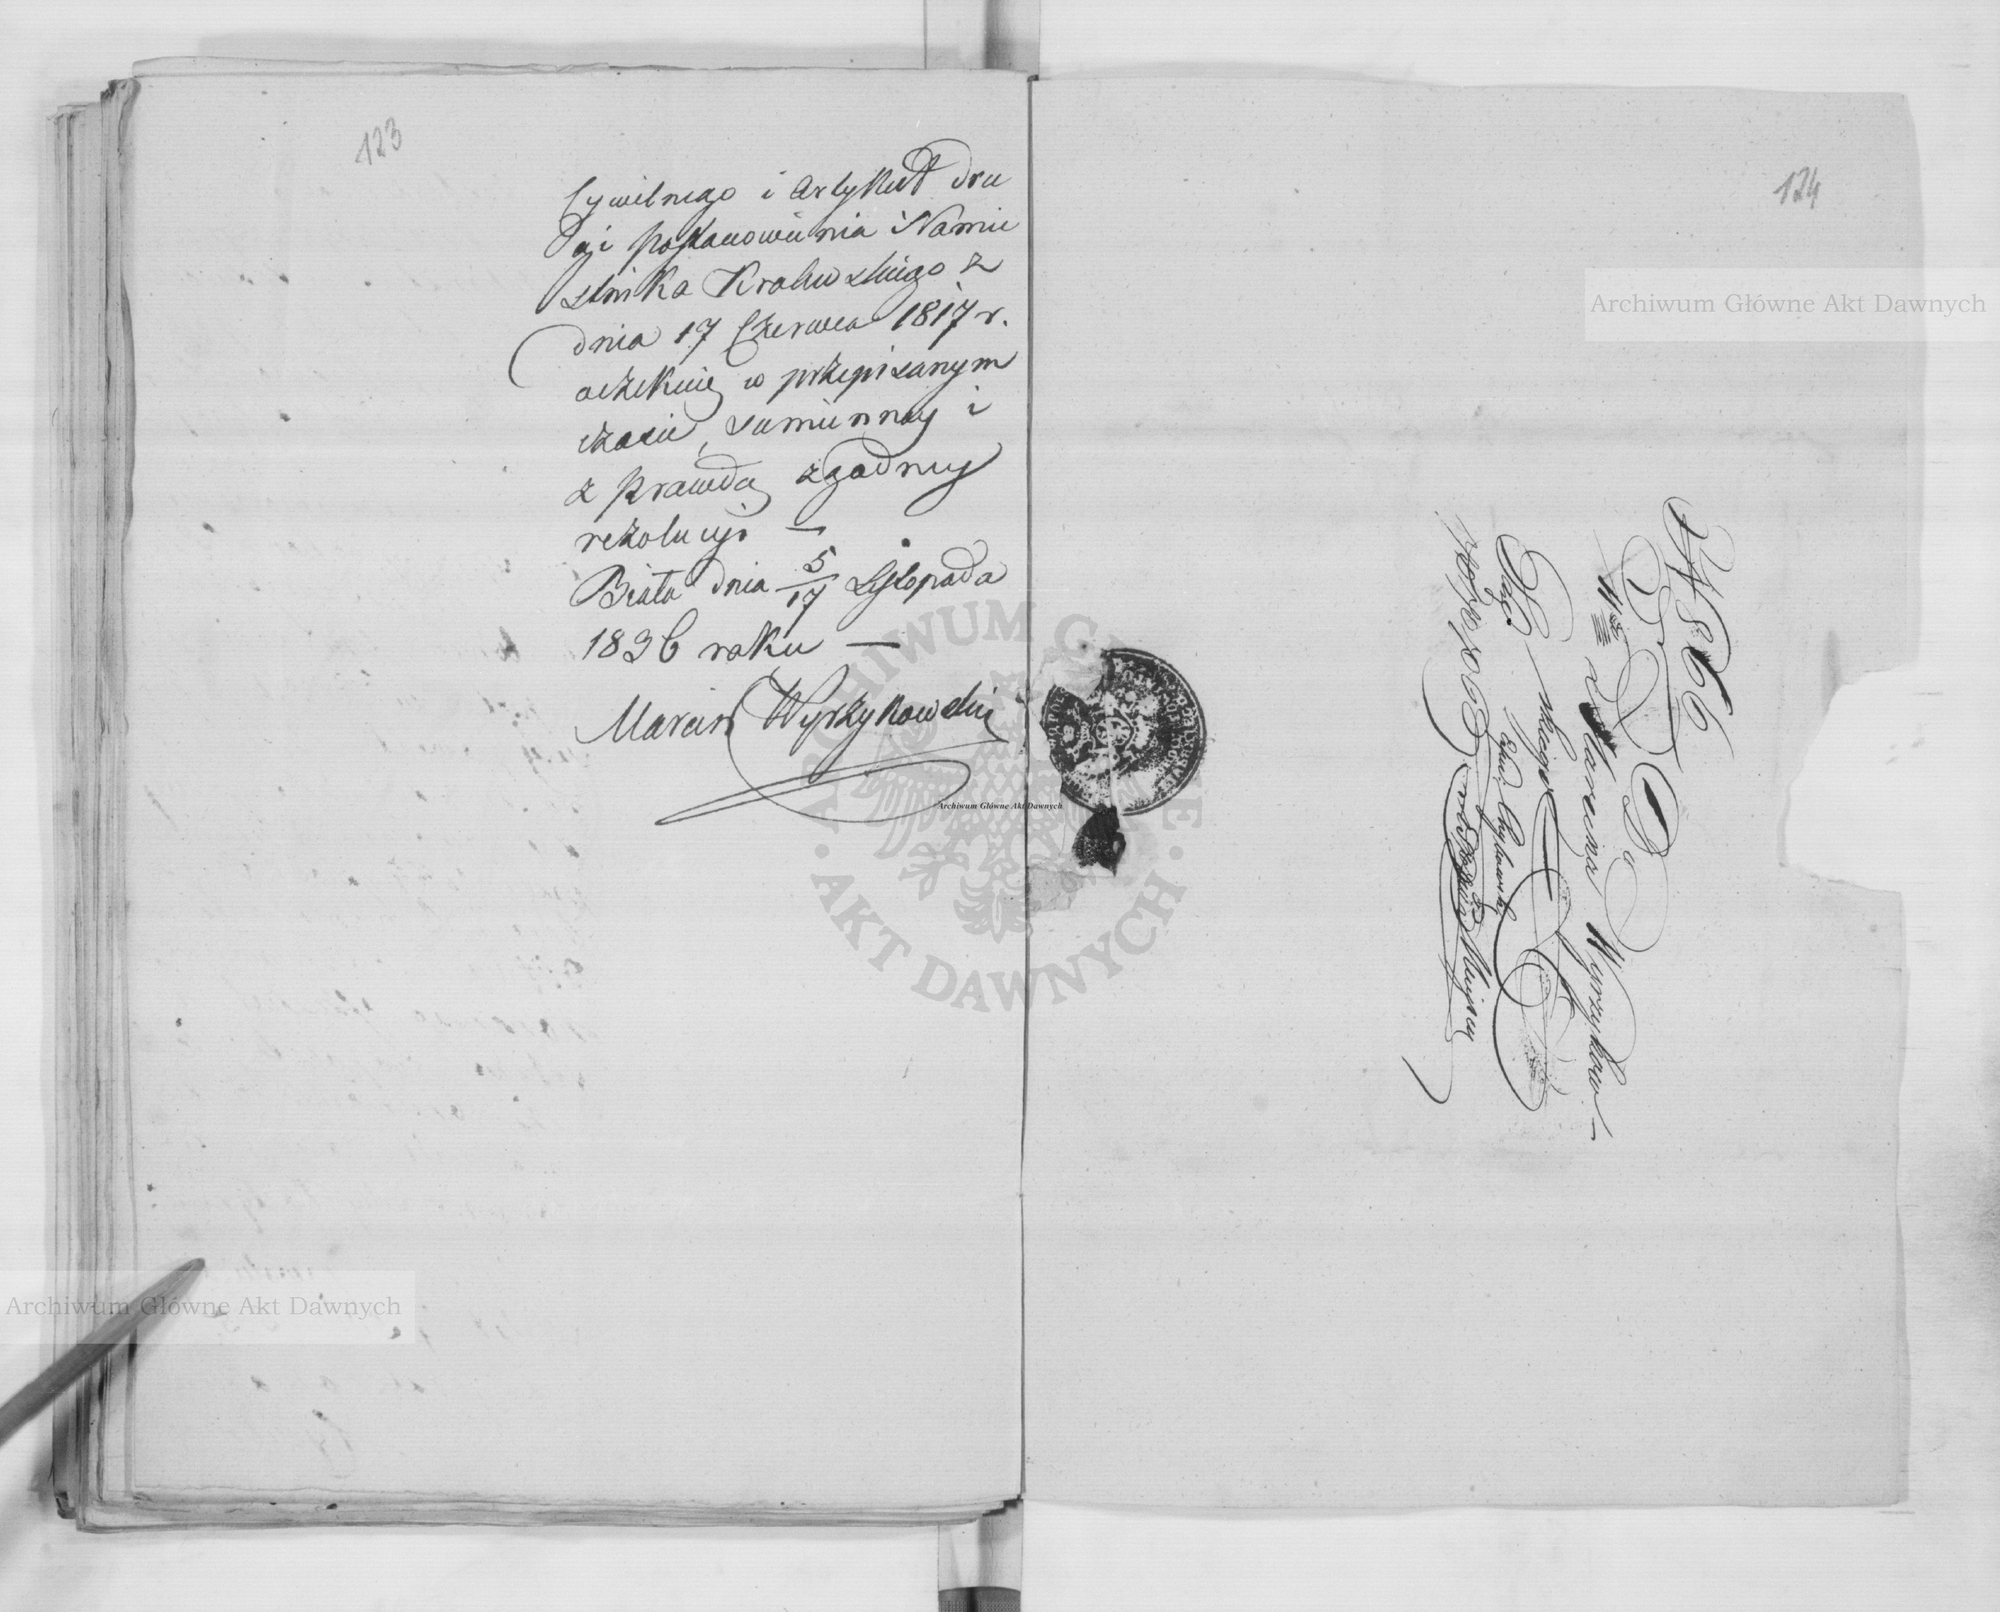 123
Cywilnego i Artykuł dru
gi postanowienia Namie
stnika Krolewskiego z
dnia 17 Czerwca 1817 r.
oczekuię w przepisanym
czasie, sumienney i
z prawdą zgodney
rezolucyi —
Biała dnia 5/17 Listopada
1836 roku —
Marcin Wyrżykowski
124
N 866
D. D.
Marcina Wyrzykow-
skiego
Archiwum Główne Akt Dawnych
Archiwum Główne Akt Dawnych
Archiwum Główne Akt Dawnych
ARCHIWUM GŁÓWNE
· AKT DAWNYCH ·